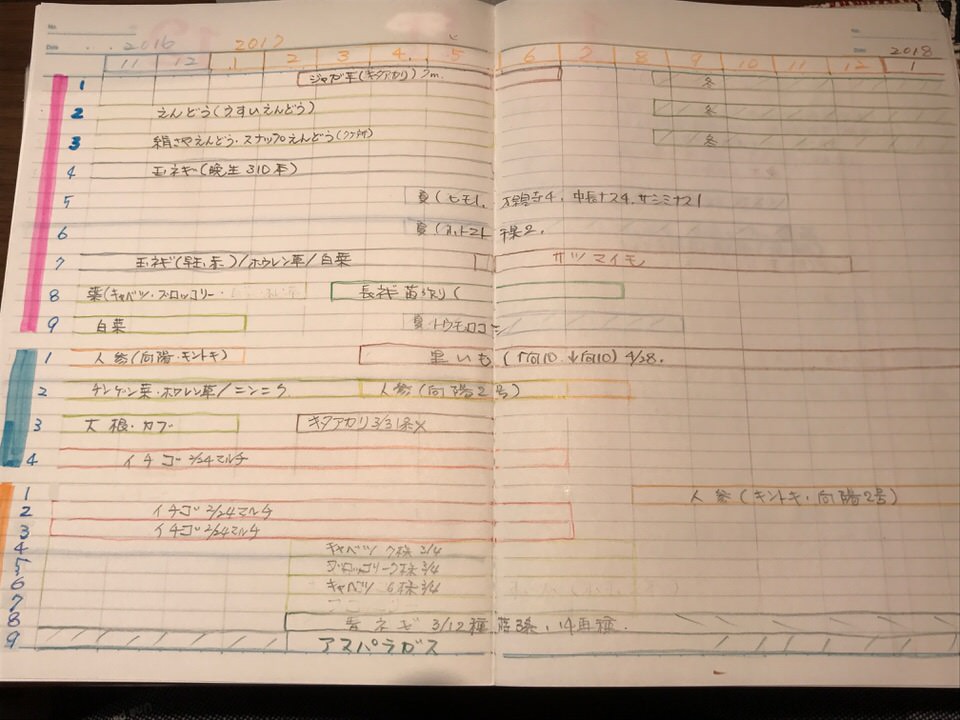 No.
Date
2016 2017
11 12 1 2 3 4 5
1 ジャガ芋(キタアカリ)
2 えんどう(うすいえんどう)
3 絹さやえんどう・スナップえんどう
4 玉ネギ(晩生310本)
5 夏(
6 夏(
7 玉ネギ(早生、赤)/ホウレン草/白菜
8 葉(キャベツ・ブロッコリー・ 長ネギ苗
9 白菜 夏・トウモロコシ
1 人参(向陽・キントキ) 里いも
2 チンゲン菜・ホウレン草/ニンニク 人参(向陽2号)
3 大根・カブ キタアカリ3/3
4 イチゴ 2/24マルチ
1
2 イチゴ 2/24マルチ
3 イチゴ 2/24マルチ
4 キャベツ 7株 3/4
5 ブロッコリー 3/4
6 キャベツ 6株 3/4
7
8 青ネギ 3/12種
9 アスパラガス
No.
Date
2018
6 7 8 9 10 11 12 1
冬
冬
冬
4, 中長ナス4, サシミナス1
サツマイモ
(↑向10 ↓向10) 4/28.
人参(キントキ・向陽2号)
3条, 14再種.